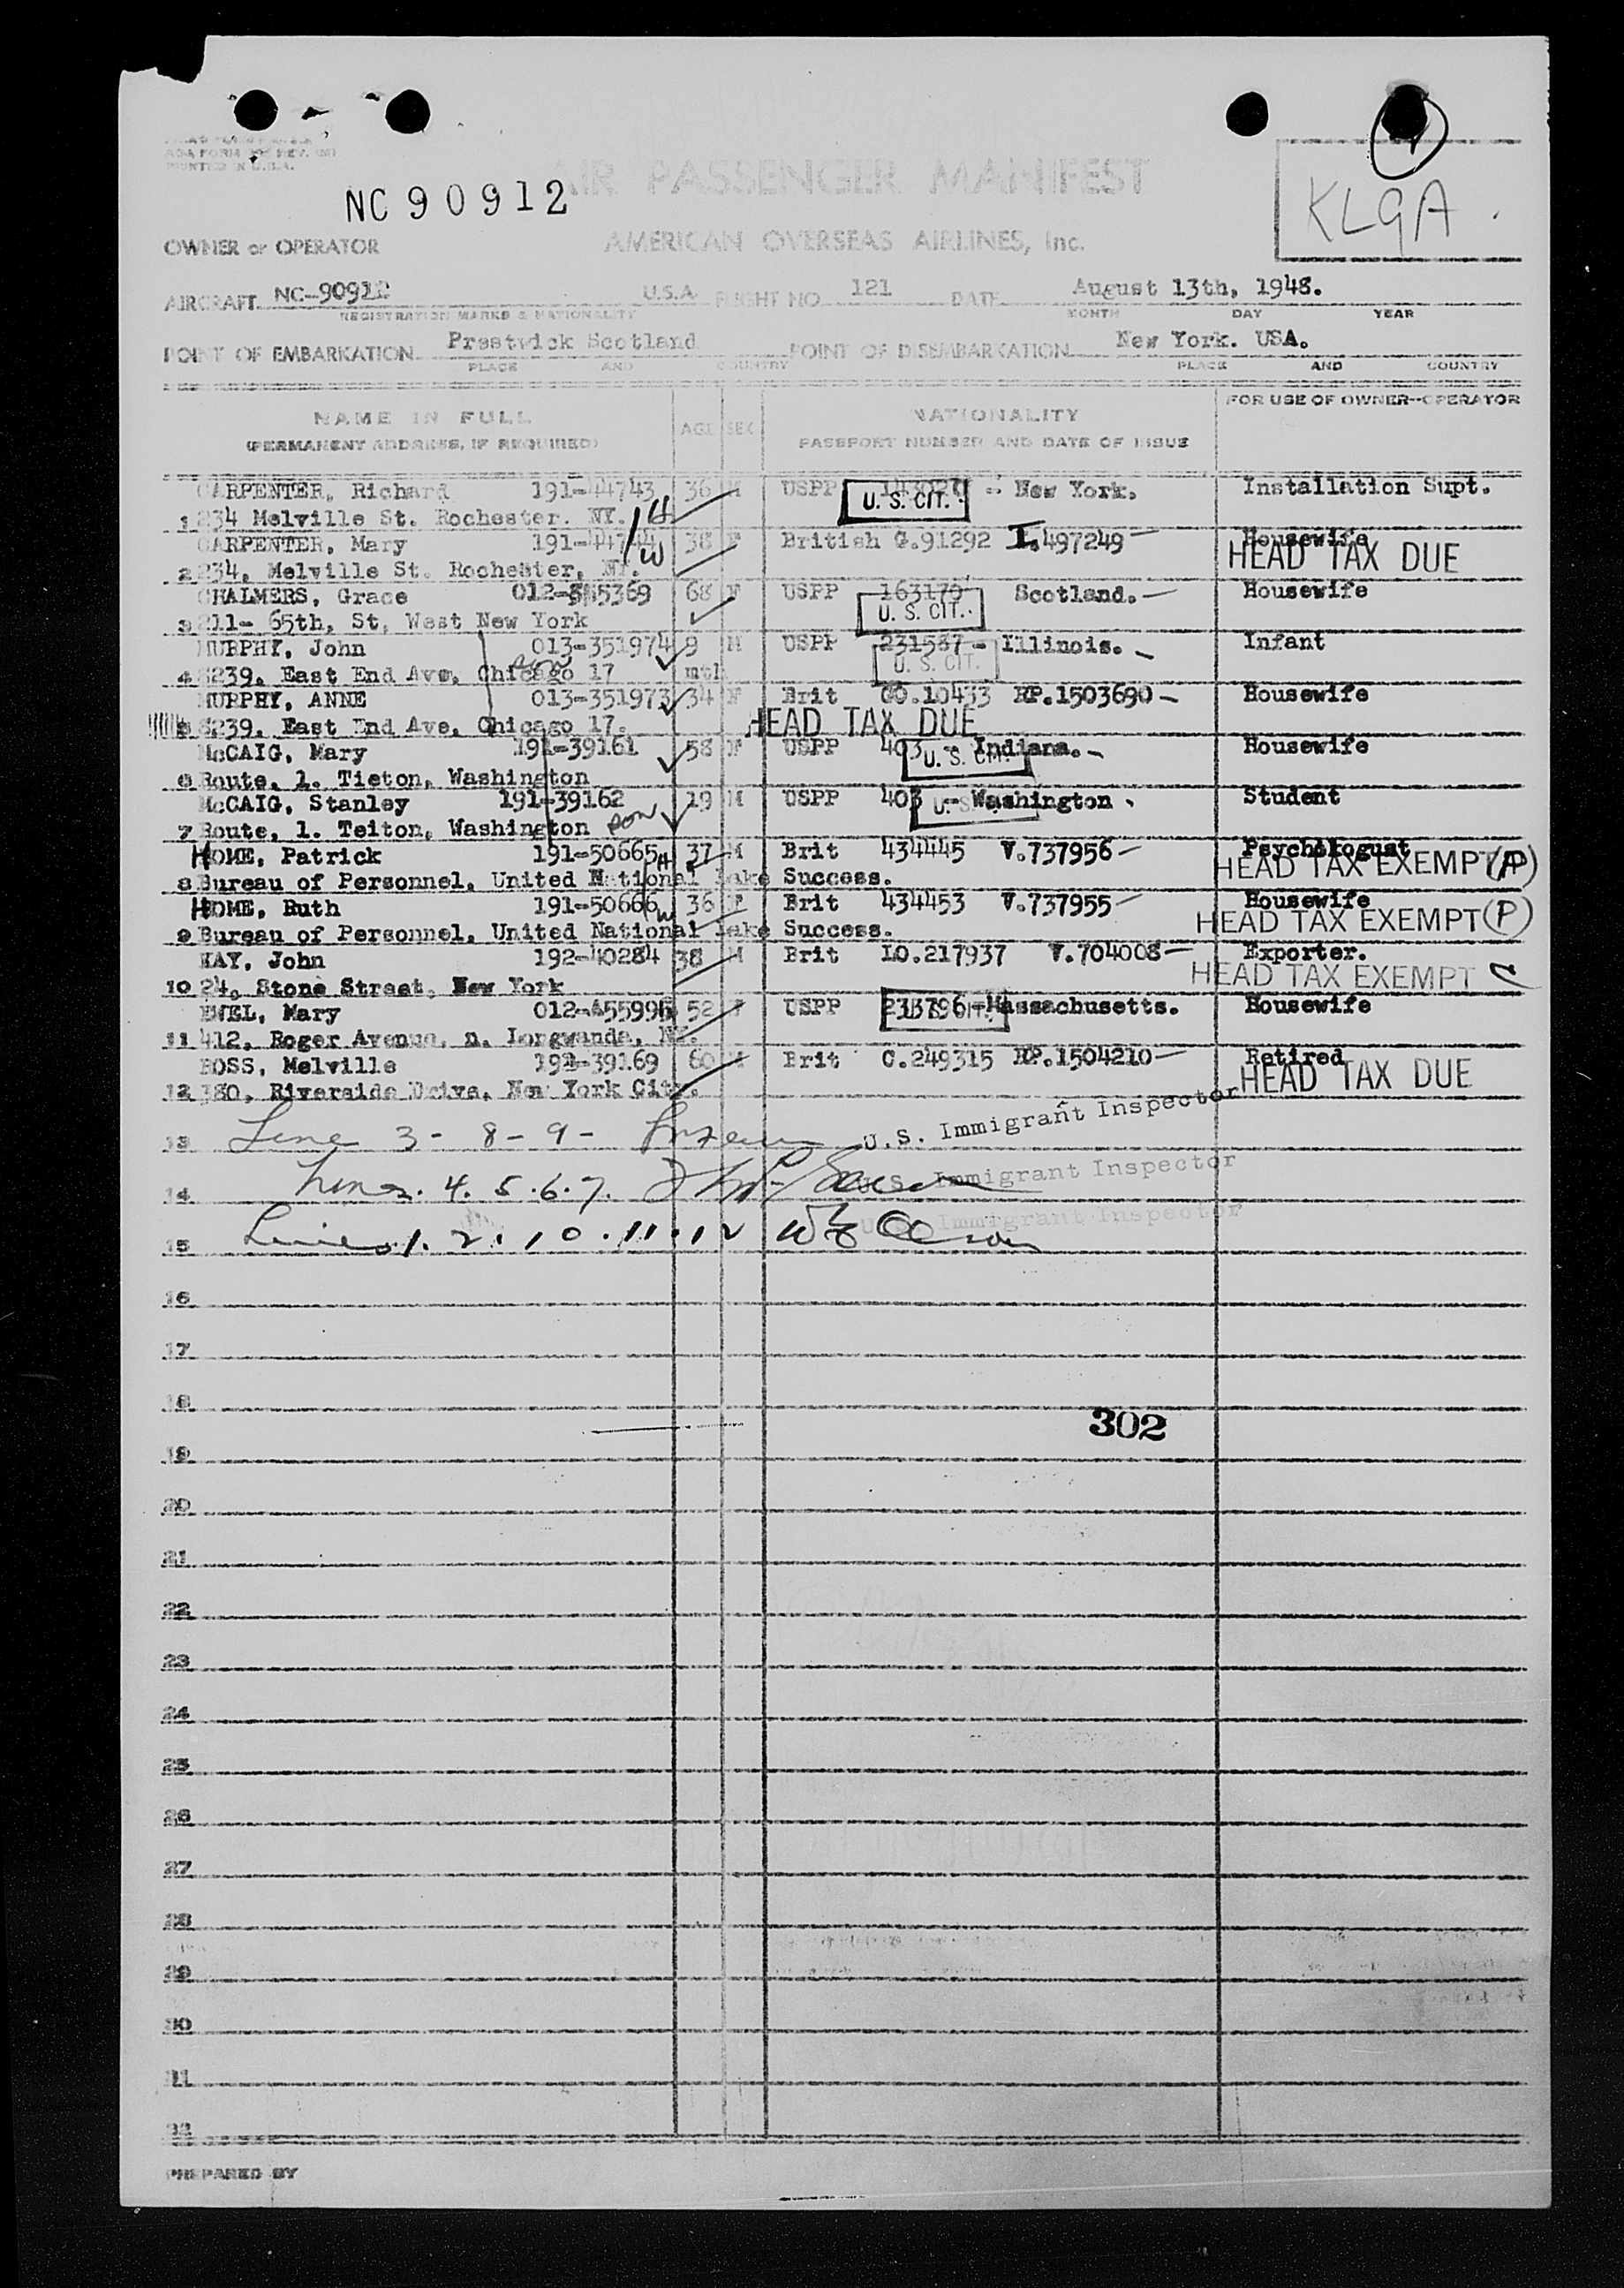 AOA FORM REV.
PRINTED IN U.S.A.
NC 90912
AIR PASSENGER MANIFEST
KLGA.
OWNER or OPERATOR AMERICAN OVERSEAS AIRLINES, Inc.
AIRCRAFT NC-90912 U.S.A. FLIGHT NO 121 DATE August 13th, 1948.
REGISTRATION MARKS & NATIONALITY MONTH DAY YEAR
POINT OF EMBARKATION Prestwick Scotland POINT OF DISEMBARKATION New York. USA.
PLACE AND COUNTRY PLACE AND COUNTRY
NAME IN FULL AGE SEX NATIONALITY FOR USE OF OWNER-OPERATOR
(PERMANENT ADDRESS, IF REQUIRED) PASSPORT NUMBER AND DATE OF ISSUE
CARPENTER, Richard 191-44743 36 M USPP U. S. CIT. - New York. Installation Supt.
1 234 Melville St. Rochester. NY. H
CARPENTER, Mary 191-44744 38 F British G.91292 I.497249 Housewife
2 234, Melville St. Rochester, NY. W HEAD TAX DUE
CHALMERS, Grace 68 F USPP 163170 Scotland. Housewife
3 211- 65th, St, West New York U. S. CIT.
MURPHY, John 013-351974 9 M USPP 231587 - Illinois. Infant
4 8239. East End Ave, Chicago 17 son mth U. S. CIT.
MURPHY, ANNE 013-351973 34 F Brit GO.10433 RP.1503690 Housewife
5 8239. East End Ave, Chicago 17. HEAD TAX DUE
McCAIG, Mary 191-39161 58 F USPP 403 - Indiana. U. S. CIT. Housewife
6 Route, 1. Tieton, Washington
McCAIG, Stanley 191-39162 19 M USPP 403 - Washington Student
7 Route, 1. Teiton, Washington son
HOME, Patrick 191-50665 H 37 M Brit 434445 V.737956 Psychologust
8 Bureau of Personnel, United National Lake Success. HEAD TAX EXEMPT (P)
HOME, Ruth 191-50666 W 36 F Brit 434453 V.737955 Housewife
9 Bureau of Personnel, United National Lake Success. HEAD TAX EXEMPT (P)
MAY, John 192-40284 38 M Brit LO.217937 V.704008 Exporter.
10 24, Stone Street, New York HEAD TAX EXEMPT C
Mary 52 F USPP Massachusetts. Housewife
11 412, Roger Avenue, n.
ROSS, Melville 191-39169 60 M Brit C.249315 RP.1504210 Retired
12 380, Riverside Drive, New York City. HEAD TAX DUE
13 Line 3 - 8 - 9 - U.S. Immigrant Inspector
14 Lines. 4. 5. 6. 7. U.S. Immigrant Inspector
15 Lines 1. 2. 10. 11. 12 U.S. Immigrant Inspector
16
17
18
302
19
20
21
22
23
24
25
26
27
28
29
30
31
32
PREPARED BY